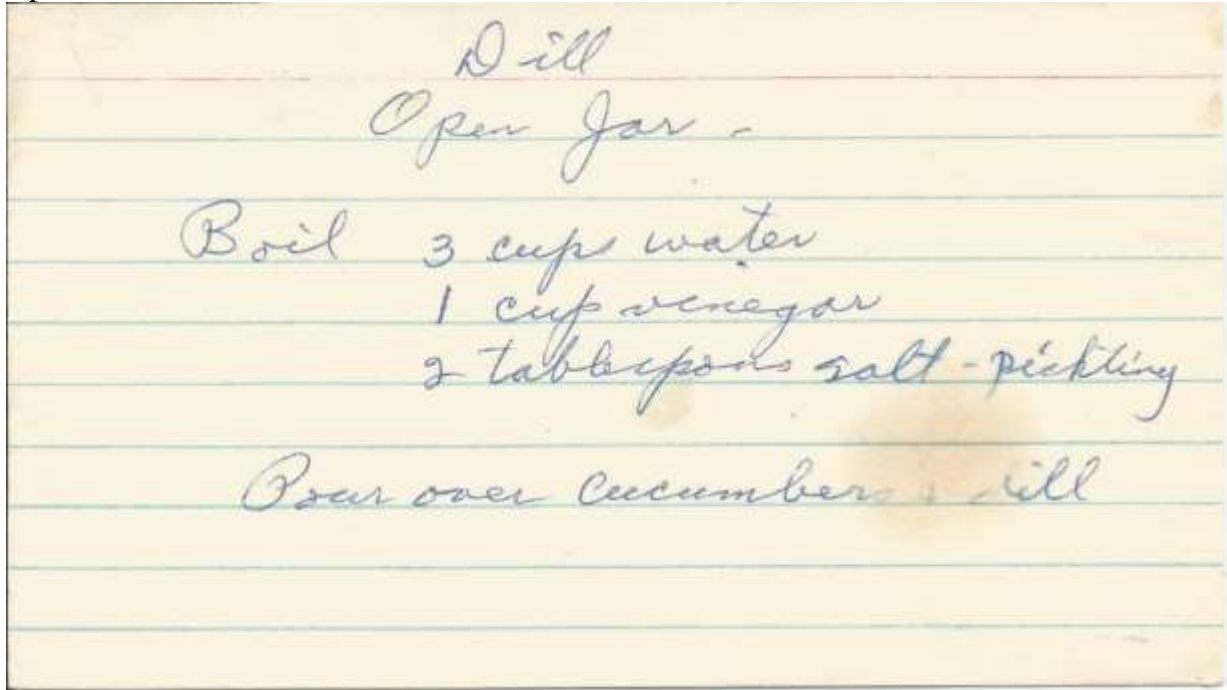 Dill
Open Jar -
Boil 3 cups water
1 cup vinegar
2 tablespoons salt - pickling
Pour over cucumbers & dill